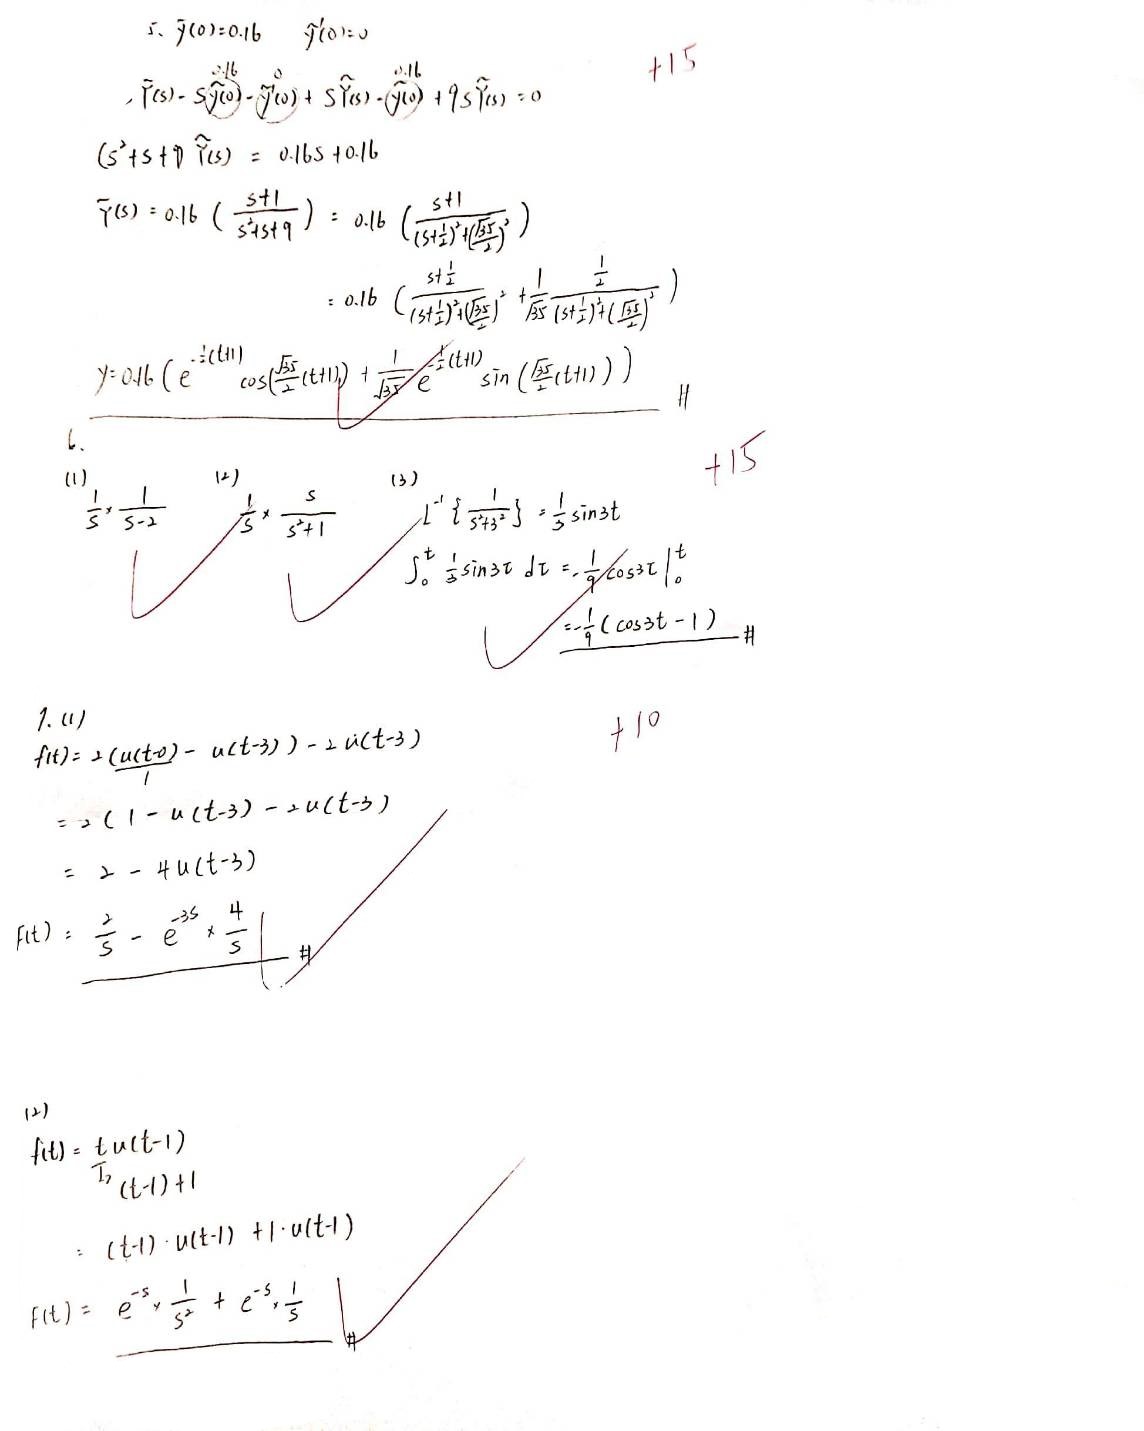 5. ỹ(0)=0.16 ỹ'(0)=0
+15
Ỹ(s) - sỹ(0) - ỹ'(0) + sỸ(s) - ỹ(0) + 9sỸ(s) = 0
0.16 0 0.16
(s²+s+9) Ỹ(s) = 0.16s + 0.16
Ỹ(s) = 0.16 ( (s+1)/(s²+s+9) ) = 0.16 ( (s+1)/((s+1/2)²+(√35/2)²) )
= 0.16 ( (s+1/2)/((s+1/2)²+(√35/2)²) + 1/√35 (1/2)/((s+1/2)²+(√35/2)²) )
y=0.16 ( e^(-1/2(t+1)) cos(√35/2 (t+1)) + 1/√35 e^(-1/2(t+1)) sin(√35/2 (t+1)) ) #
6.
+15
(1) 1/s × 1/(s-2)
(2) 1/s × s/(s²+1)
(3) L⁻¹ { 1/(s²+3²) } = 1/3 sin3t
∫₀ᵗ 1/3 sin3τ dτ = -1/9 cos3τ |₀ᵗ
= -1/9 (cos3t - 1) #
7. (1)
+10
f(t) = 2(u(t-0) - u(t-3)) - 2u(t-3)
1
= 2(1 - u(t-3) - 2u(t-3)
= 2 - 4u(t-3)
F(t) = 2/s - e^(-3s) × 4/s #
(2)
f(t) = t u(t-1)
↳ (t-1)+1
= (t-1)·u(t-1) + 1·u(t-1)
F(t) = e^(-s) × 1/s² + e^(-s) × 1/s #